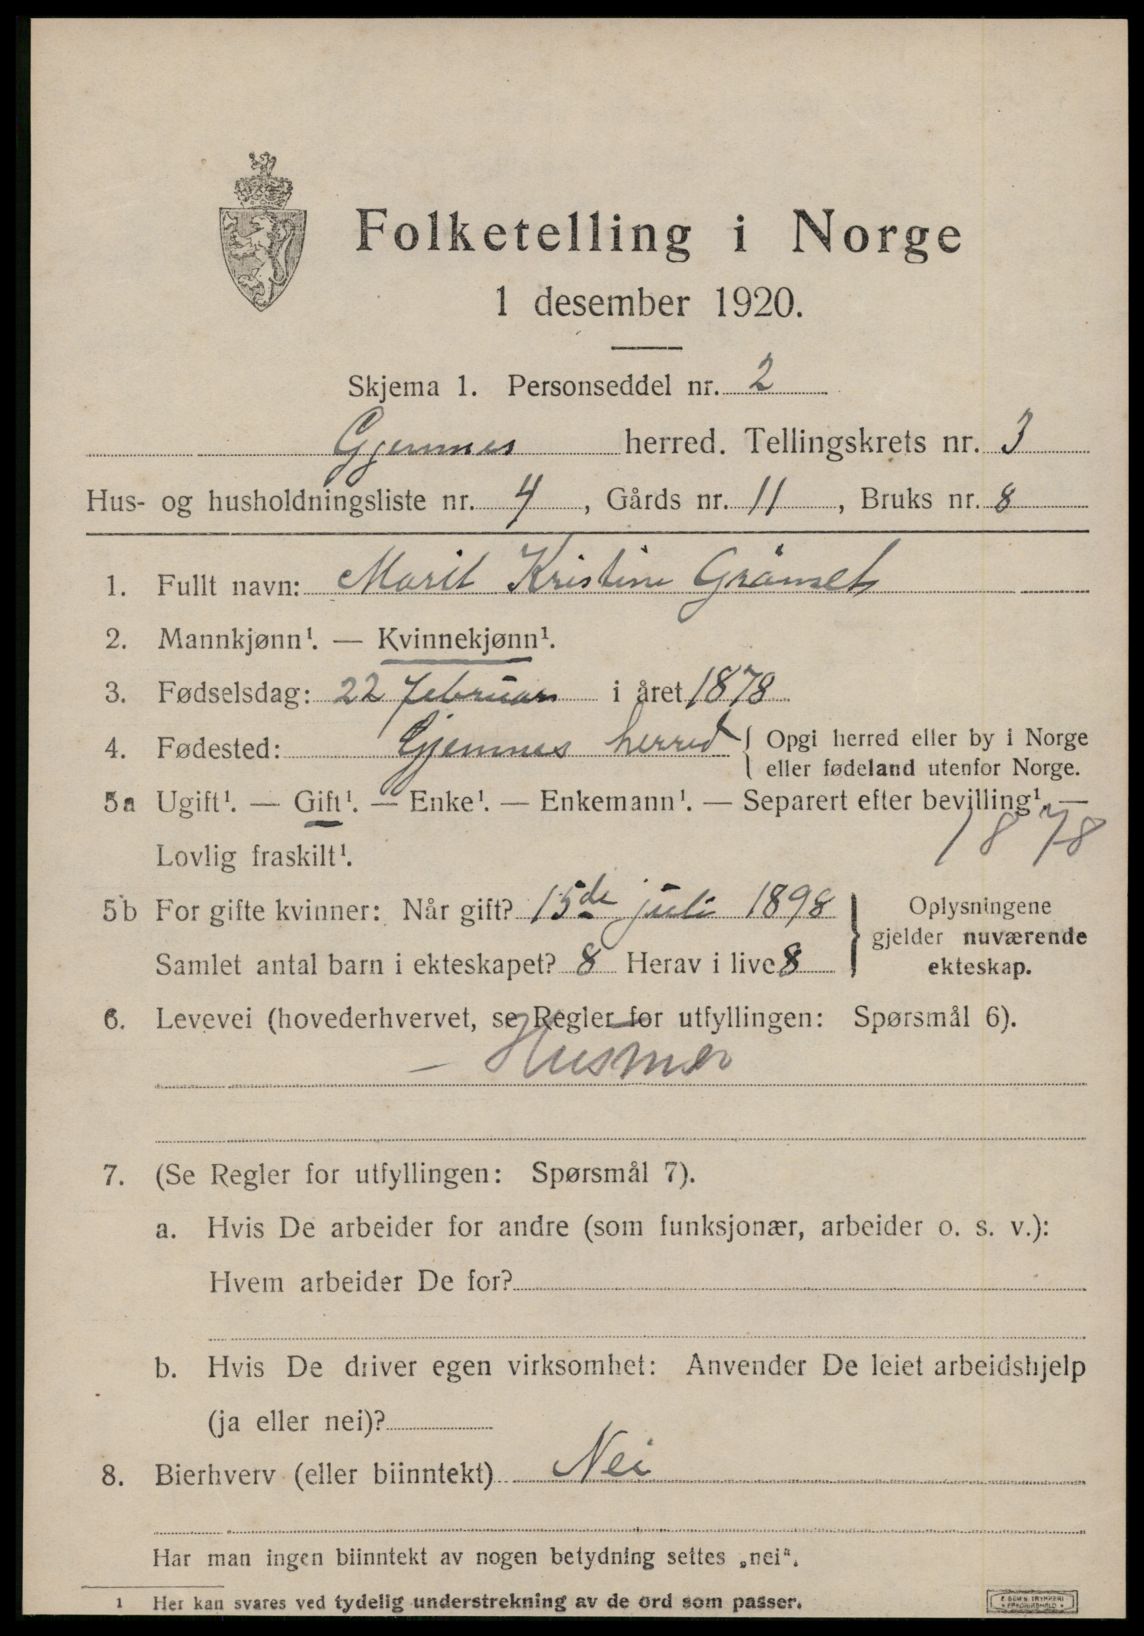 Folketelling i Norge
1 desember 1920.
Skjema 1. Personseddel nr. 2
Gjemnes herred. Tellingskrets nr. 3
Hus- og husholdningsliste nr. 4, Gårds nr. 11, Bruks nr. 8
1. Fullt navn: Marit Kristine Grånset
2. Mannkjønn¹. — Kvinnekjønn¹.
3. Fødselsdag: 22 februar i året 1878
4. Fødested: Gjemnes herred { Opgi herred eller by i Norge
eller fødeland utenfor Norge.
5a Ugift¹. — Gift¹. — Enke¹. — Enkemann¹. — Separert efter bevilling¹. —
1878
Lovlig fraskilt¹.
5b For gifte kvinner: Når gift? 15de juli 1898 } Oplysningene
gjelder nuværende
Samlet antal barn i ekteskapet? 8 Herav i live 8 ekteskap.
6. Levevei (hovederhvervet, se Regler for utfyllingen: Spørsmål 6).
— Husmor
7. (Se Regler for utfyllingen: Spørsmål 7).
a. Hvis De arbeider for andre (som funksjonær, arbeider o. s. v.):
Hvem arbeider De for?
b. Hvis De driver egen virksomhet: Anvender De leiet arbeidshjelp
(ja eller nei)?
8. Bierhverv (eller biinntekt) Nei
Har man ingen biinntekt av nogen betydning settes „nei“.
1 Her kan svares ved tydelig understrekning av de ord som passer.